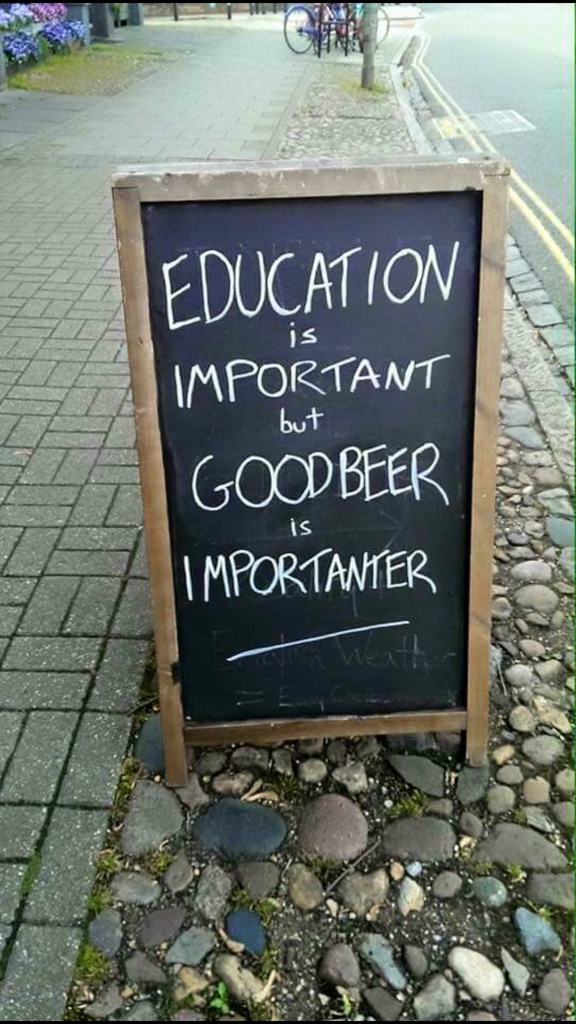 EDUCATION
is
IMPORTANT
but
GOOD BEER
is
IMPORTANTER
English Weather